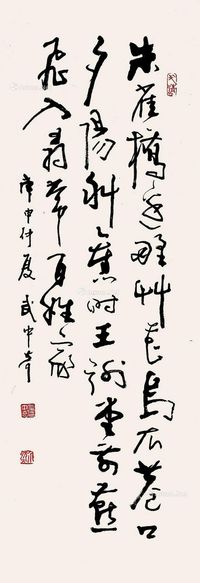 朱雀橋邊野艸花烏衣巷口
夕陽斜舊時王謝堂前燕
飛入尋常百姓家
庚申仲夏武中奇